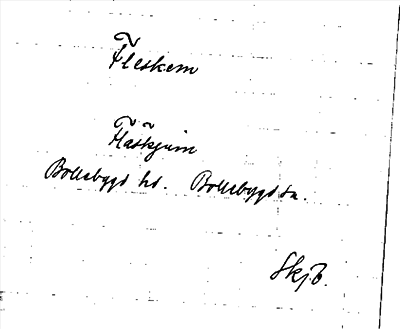 Fleskem
Fläskjum
Bollebygd hd. Bollebygd sn.
SkjB.